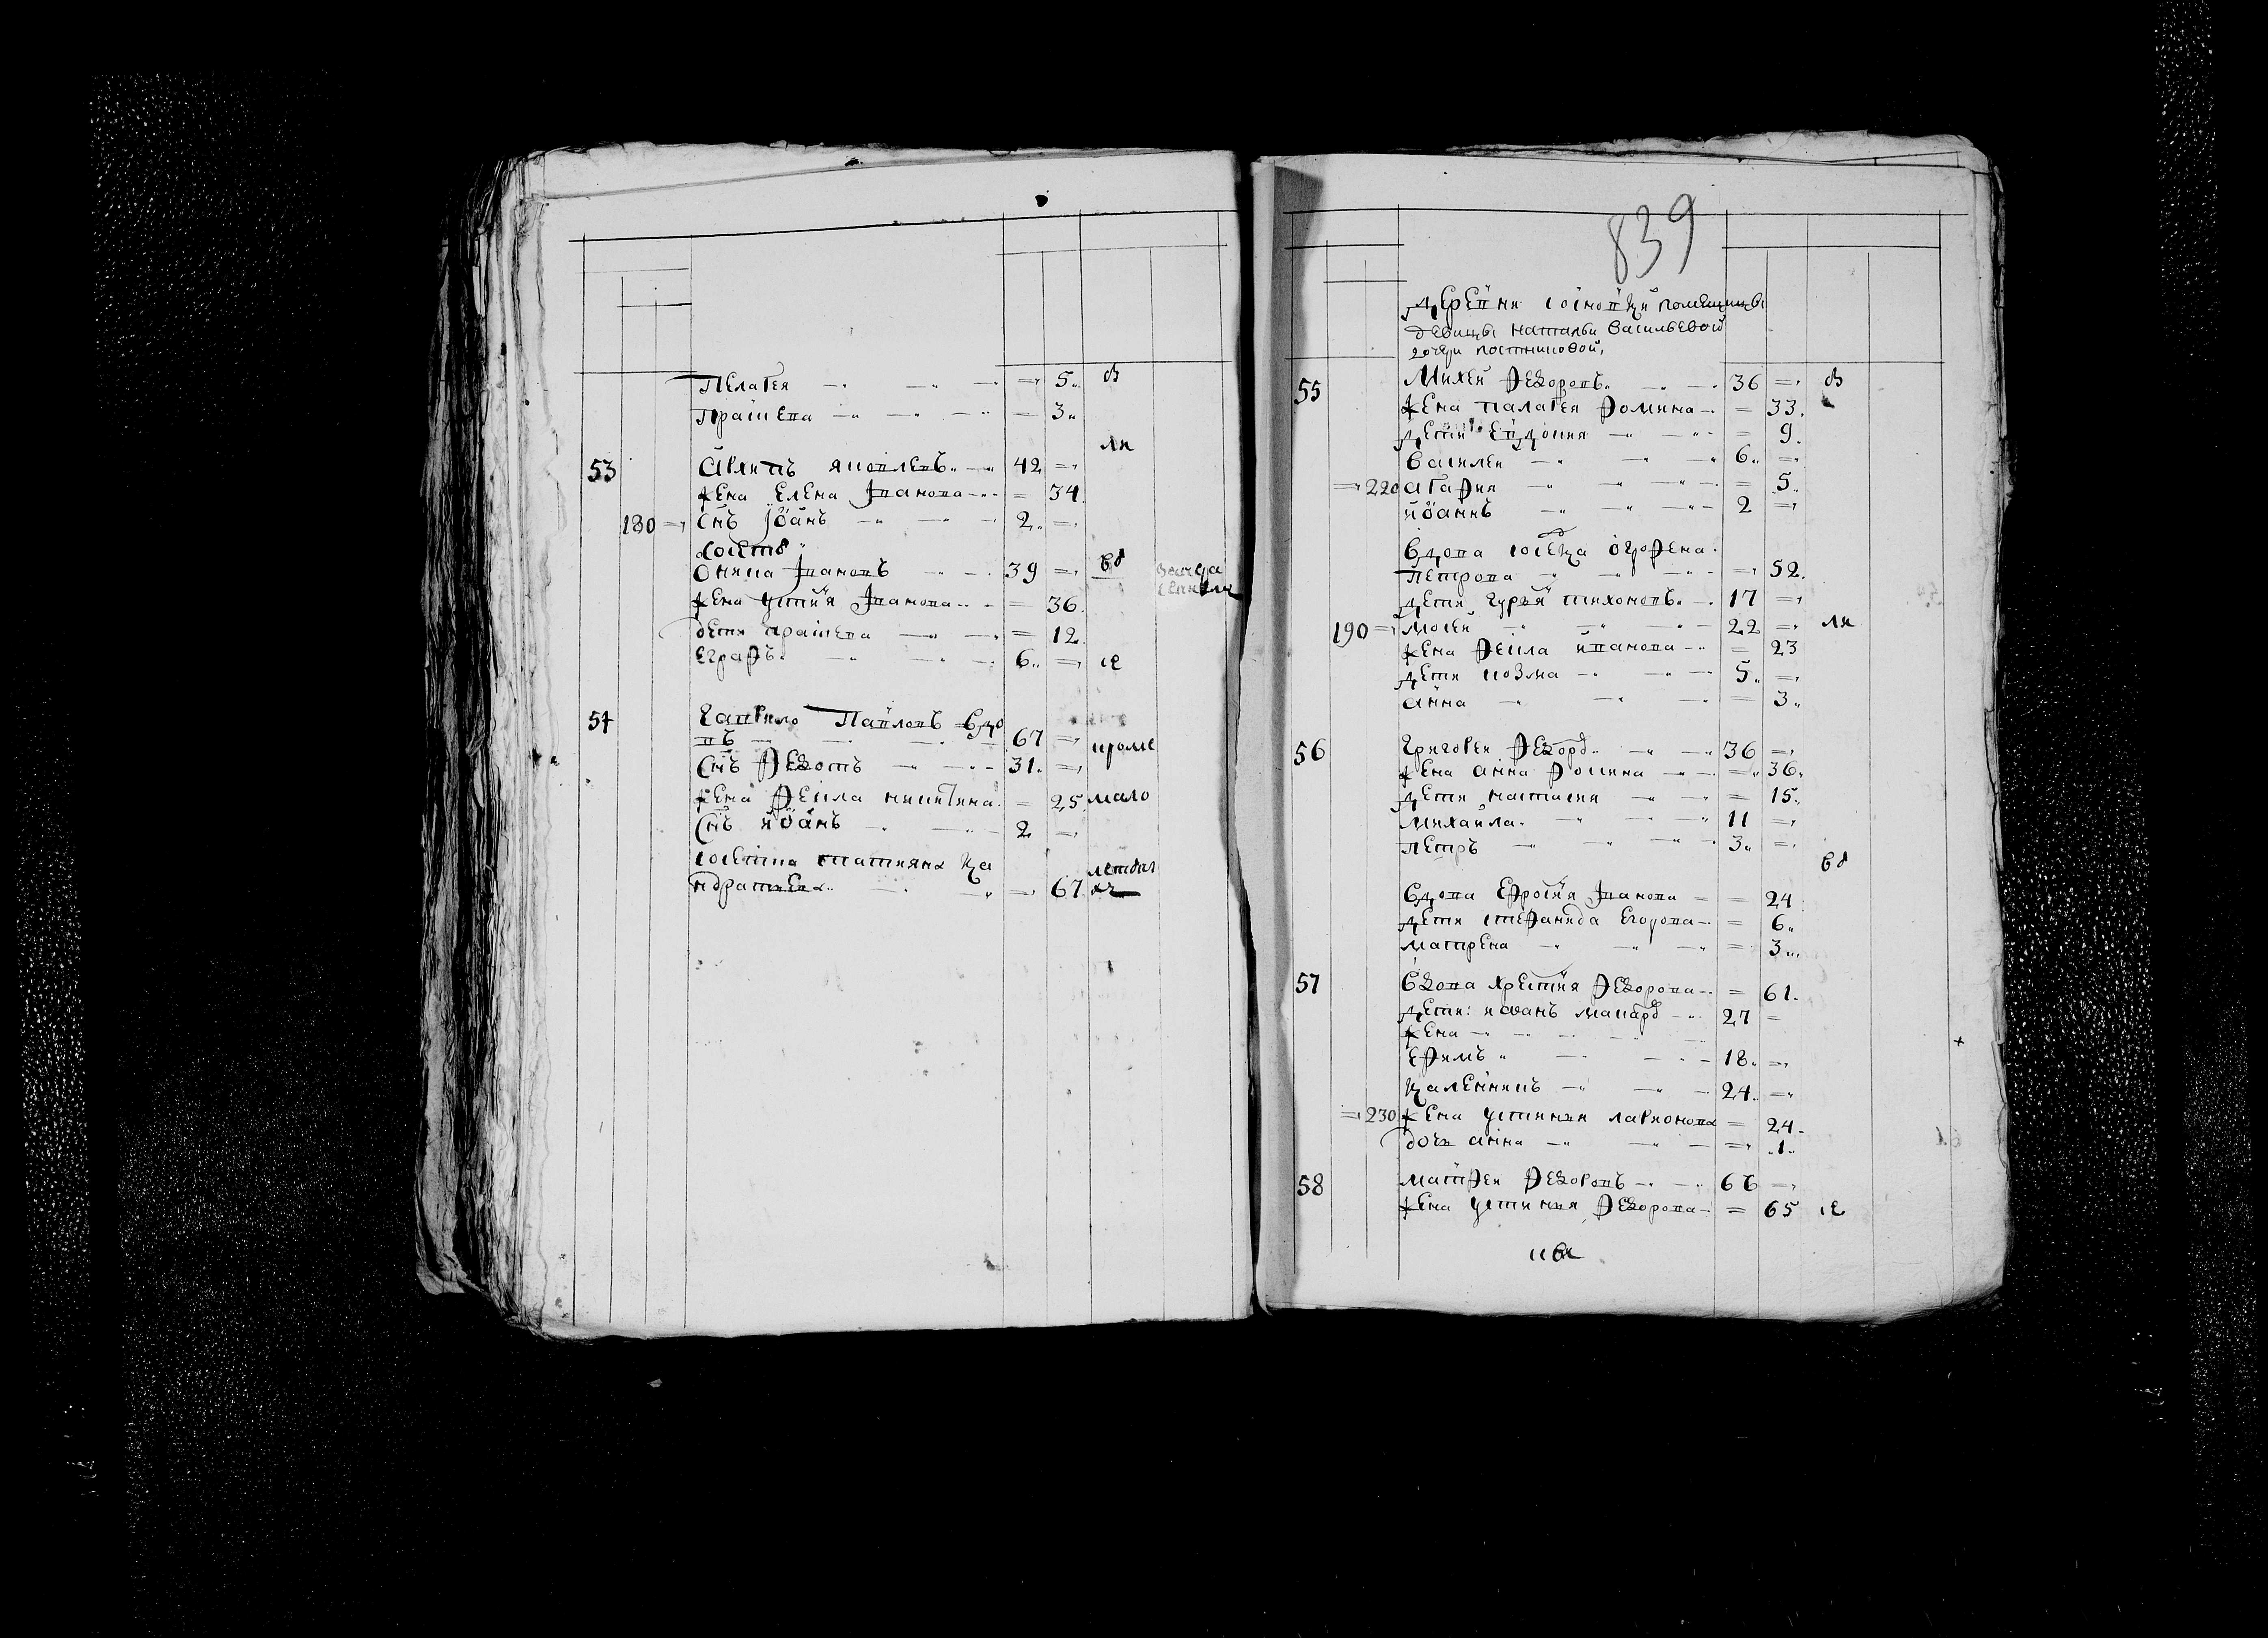 Пелагея 5 в
Прасковя 3
ли
53 Архипъ яковлевъ 42
жена Елена Iванова 34
180 снъ Iоаннъ 2
соседъ
Оника Iвановъ 39 въ
жена устинья Iванова 36
дети прасковя 12
Еграфъ 6 се
54 Гаврило Павловъ вдо
въ 67 кроме
снъ Федотъ 31
жена Фекла никитина 25 мало
снъ иоаннъ 2
соседка татияна ка
ндратьева 67 летныхъ
839
деревни помещицы
девицы натальи васильевой
дочери постниковой,
55 Михей Федоровъ 36 в
жена палагея Фомина 33
дети Евдокия 9
василей 6
220 агафия 5
иоаннъ 2
вдова соседка огрофена
петрова 52
дети гурья тихоновъ 17
190 мосей 22 ли
жена Фекла иванова 23
дети козма 5
анна 3
56 григорей Федоро 36
жена анна Фокина 36
дети настасия 15
михайла 11
петръ 3
въ
вдова Ефросиня Iванова 24
дети стефанида Егорова 6
матрена 3
57 вдова христиня Федорова 61
дети: иоанъ макаро 27
жена
Ефимъ 18
каленикъ 24
230 жена устинья ларионова 24
дочь анна 1
58 матфей Федоровъ 66
жена устиния Федорова 65 се